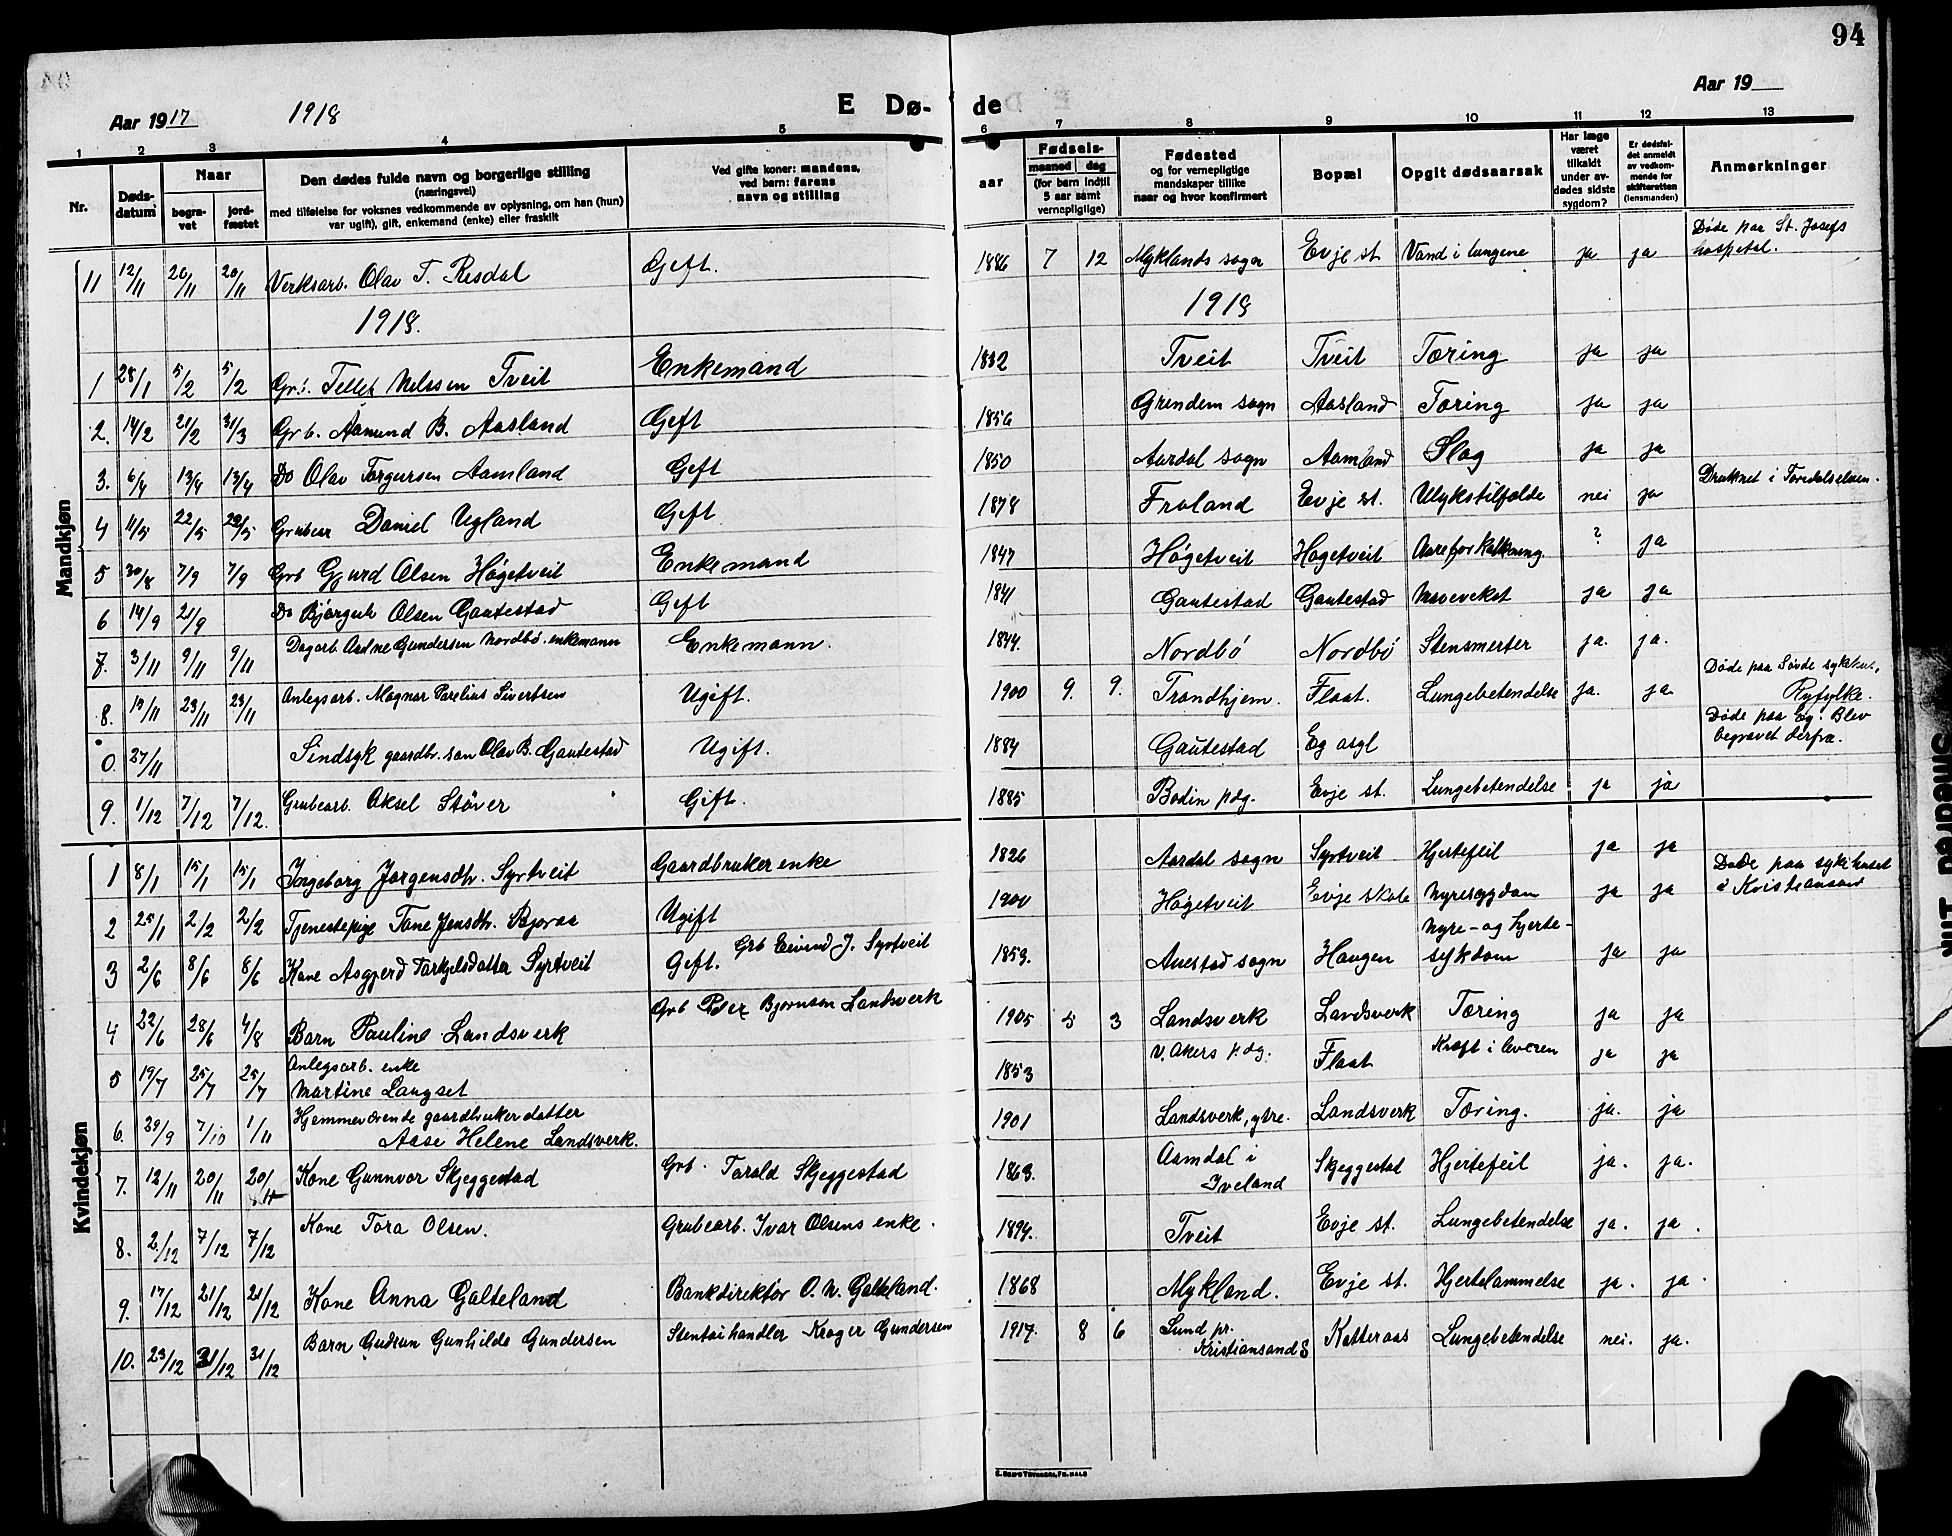 94
Aar 1917 1918 E Dø- de Aar 19
1 2 3 4 5 6 7 8 9 10 11 12 13
Nr. Døds-datum Naar begra-vet jord-fæstet Den dødes fulde navn og borgerlige stilling (næringsvei) med tilføielse for voksnes vedkommende av oplysning, om han (hun) var ugift), gift, enkemand (enke) eller fraskilt Ved gifte koner: mandens, ved barn: farens navn og stilling aar Fødsels- maaned dag (for barn indtil 5 aar samt vernepligtige) Fødested og for vernepligtige mandskaper tillike naar og hvor konfirmert Bopæl Opgit dødsaarsak Har læge været tilkaldt under av-dødes sidste sygdom? Er dødsfal-det anmeldt av vedkom-mende for skifteretten (lensmanden) Anmerkninger
Mandkjøn
11 12/11 20/11 20/11 Verksarb. Olav T. Risdal Gift. 1886 7 12 Myklands sogn Evje st. Vand i lungene ja ja Døde paa St. Josefs hospetal.
1918. 1918
1 28/1 5/2 5/2 Grb. Tellef Nelssen Tveit Enkemand 1832 Tveit Tveit Tæring ja ja
2. 14/2 21/2 31/3 Grb. Aamund B. Aasland Gift 1856 Grendem sogn Aasland Tæring ja ja
3. 6/4 13/4 13/4 Do Olav Torgursen Aamland Gift 1850 Aardal sogn Aamland Slag ja ja
4 11/5 22/5 22/5 Grubear Daniel Ugland Gift 1878 Froland Evje st. Ulykstilfælde nei ja Druknet i Toredalselven.
5 30/8 7/9 7/9 Grb Gjurd Olsen Högetveit Enkemand 1847 Högetveit Hogetveit Aareforkalkning. ? ja
6 14/9 21/9 Do Bjørgulv Olsen Gautestad Gift 1841 Gautestad Gautestad Maveveket ja ja
7. 3/11 9/11 9/11 Dagarb. Aadne Gundersen Nordbø. enkemann Enkemann. 1844. Nordbó Nordbó Stensmerter ja. ja.
8. 19/11 23/11 23/11 Anlegsarb. Magnar Parelius Sivertsen Ugift. 1900 9. 9. Trondhjem. Flaat. Lungebetendelse ja. ja Døde paa Søvde sykehus, Ryfylke.
0. 27/11 Sindsyk gaardbr. søn Olav B. Gautestad Ugift. 1884 Gautestad Eg asyl Døde paa Eg. Blev begravet derfra.
9. 1/12 7/12 7/12. Grubearb. Aksel Støver Gift. 1885 Bodin pdg. Evje st. Lungebetendelse ja ja
Kvindekjøn
1 8/1 15/1 15/1 Ingeborg Jørgensdtr. Syrtveit Gaardbruker enke 1826 Aardal sogn Syrtveit Hjertefeil ja ja
2 25/1 2/2 2/2 Tjenestepige Tone Jensdtr. Bjoraa Ugift 1900 Högetveit Evje skole Nyresygdom ja ja Døde paa sykehuset i Kristiansand
3 2/6 8/6 8/6 Kone Asgjerd Tarkjelsdatter Syrtveit Gift. Grb Eivind J. Syrtveit 1853. Auestad sogn Haugen Nyre- og hjerte-sykdom ja ja
4 22/6 28/6 4/8 Barn Pauline Landsverk Grb Peder Bjørnson Landsverk 1905 5 3 Landsverk Landsverk Tæring ja ja
5 19/7 25/7 25/7 Anlegsarb. enke Martine Langset 1853 V. Akers p.dg. Flaat Kræft i leveren ja ja
6. 29/9 7/10 1/11 Hjemmeværende gaardbruker datter Aase Helene Landsverk. 1901 Landsverk, ytre. Landsverk Tæring. ja. ja
7. 12/11 20/11 20/11 Kone Gunnvor Skjeggestad Grb. Torald Skjeggestad 1863. Aamdal i Iveland Skjeggestad Hjertefeil ja. ja.
8. 2/12 7/12 7/12 Kone Tora Olsen. Grubearb. Ivar Olsens enke. 1894. Tveit Evje st. Lungebetendelse ja. ja.
9. 17/12 21/12 21/12 Kone Anna Galteland Bankdirektør O. N. Galteland. 1868 Mykland. Evje st. Hjertelammelse ja. ja.
10. 23/12 31/12 31/12 Barn Gudrun Gunhilde Gundersen Stentøihandler Krøger Gundersen 1917. 8 6 Lund pr. Kristiansand S Katteraas Lungebetendelse nei. ja.